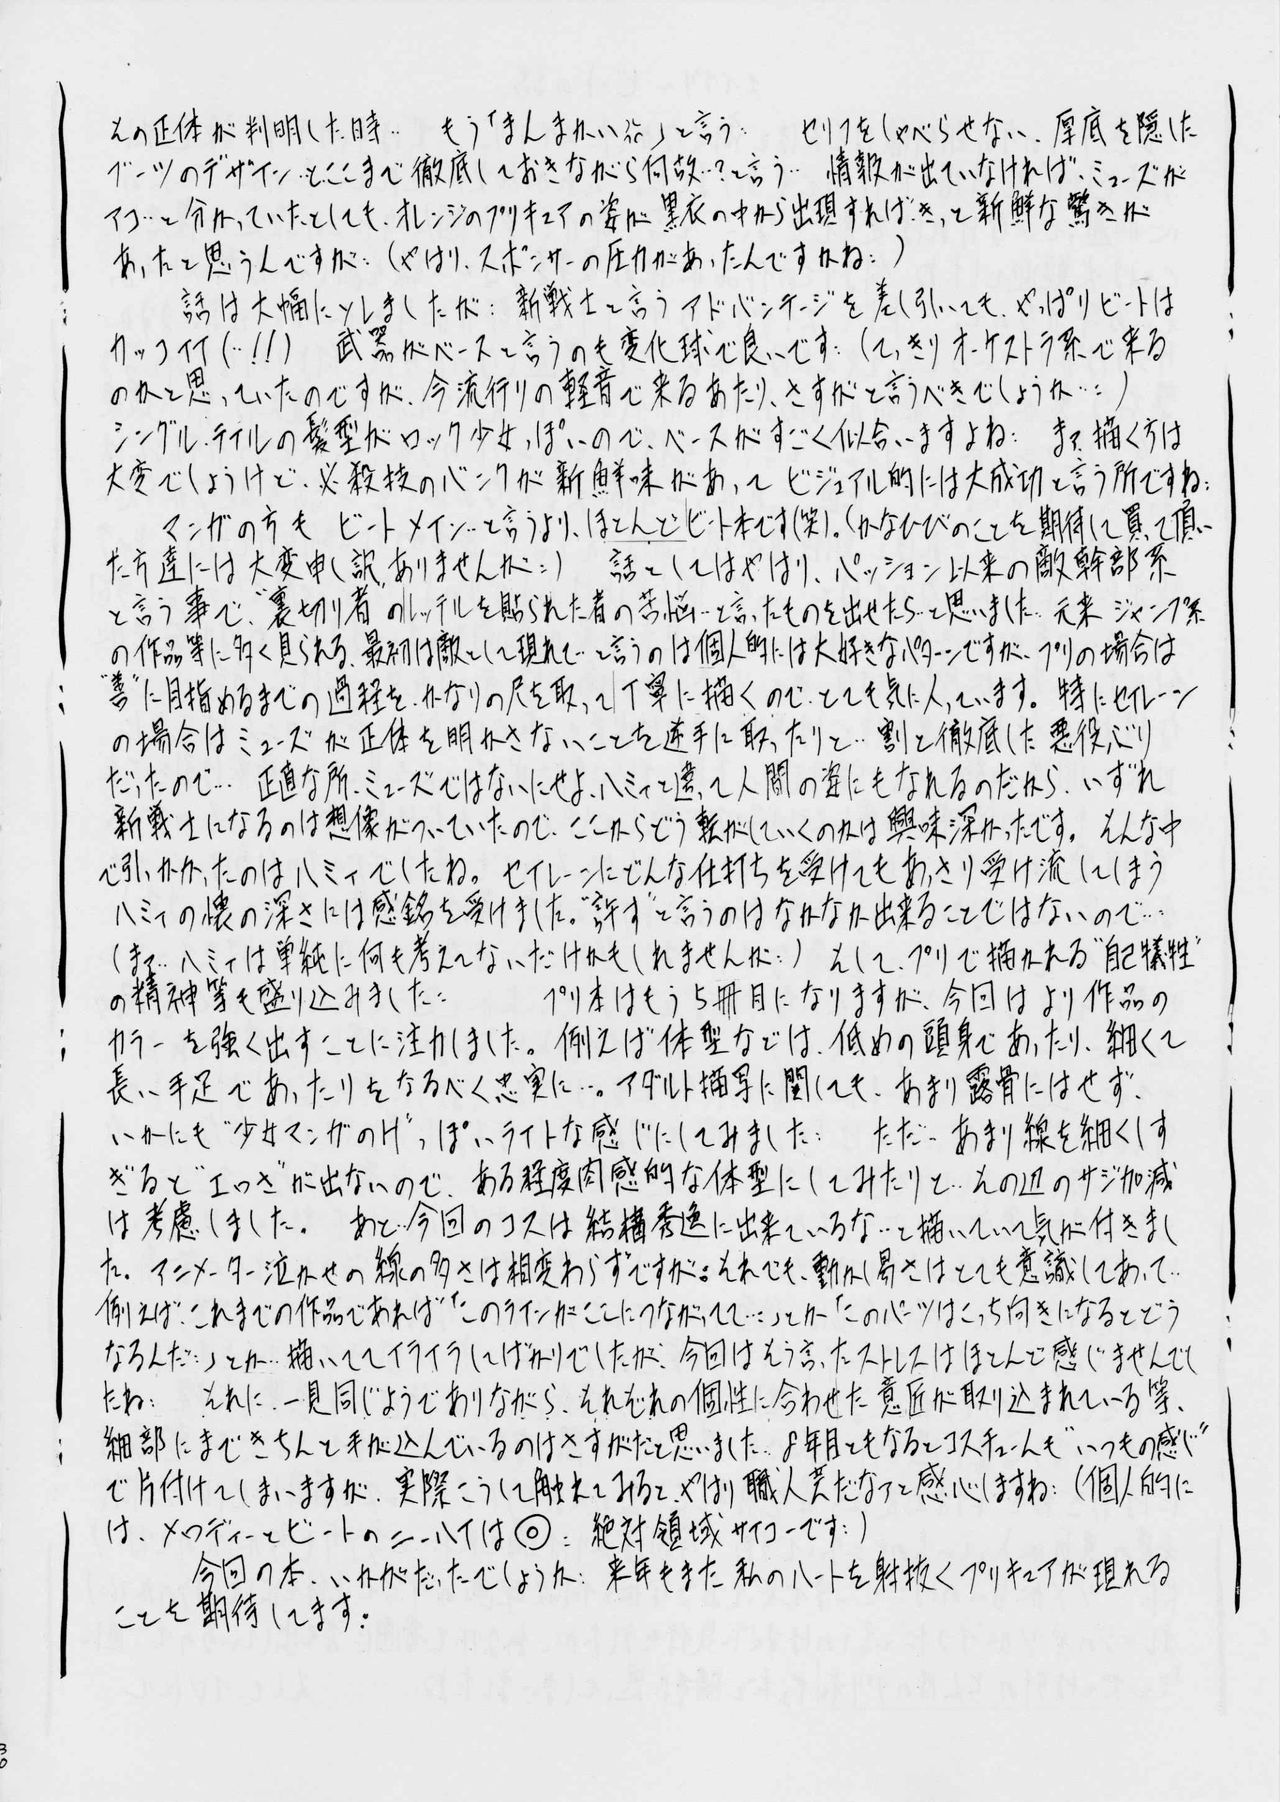 その正体が判明した時… もう「まんまかい」と言う… セリフをしゃべらせない、厚底を隠した
ブーツのデザイン…とここまで徹底しておきながら何故…?と言う… 情報が出ていなければ、ミューズが
アコ…と分かっていたとしても、オレンジのプリキュアの姿が黒衣の中から出現すれば、きっと新鮮な驚きが
あったと思うんですが… (やはり、スポンサーの圧力があったんですかね…)
話は大幅にソレましたが… 新戦士と言うアドバンテージを差し引いても、やっぱりビートは
カッコイイ(…!!) 武器がベースと言うのも変化球で良いです… (てっきりオーケストラ系で来る
のかと思っていたのですが、今流行りの軽音で来るあたり、さすがと言うべきでしょうか…)
シングルテイルの髪型がロック少女っぽいので、ベースがすごく似合いますよね… まァ、描く方は
大変でしょうけど、必殺技のバンクが新鮮味があってビジュアル的には大成功と言う所ですね…
マンガの方も ビートメイン…と言うより、ほとんどビート本です(笑)。(かなひびのことを期待して買って頂い
た方達には大変申し訳ありませんが…) 話としてはやはり、パッション以来の敵幹部系
と言う事で、“裏切り者”のレッテルを貼られた者の苦悩…と言ったものを出せたら…と思いました… 元来ジャンプ系
の作品等に多く見られる、最初は敵として現れて…と言うのは個人的には大好きなパターンですが、プリの場合は
“善”に目指めるまでの過程を、かなりの尺を取って丁寧に描くので、とても気に入っています。特にセイレーン
の場合はミューズが正体を明かさないことを逆手に取ったりと… 割と徹底した悪役ぶり
だったので… 正直な所、ミューズではないにせよ、ハミィと違って人間の姿にもなれるのだから、いずれ
新戦士になるのは想像がついていたので、ここからどう転がしていくのかは興味深かったです。そんな中
で引っかかったのはハミィでしたね。セイレーンにどんな仕打ちを受けてもあっさり受け流してしまう
ハミィの懐の深さには感銘を受けました。“許す”と言うのはなかなか出来ることではないので…
(まァ… ハミィは単純に何も考えてないだけかもしれませんが…) そして、プリで描かれる“自己犠牲”
の精神等も盛り込みました… プリ本はもう5冊目になりますが、今回はより作品の
カラーを強く出すことに注力しました。例えば体型などは、低めの頭身であったり、細くて
長い手足であったりをなるべく忠実に…。アダルト描写に関しても、あまり露骨にはせず、
いかにも“少女マンガのH”っぽいライトな感じにしてみました… ただ… あまり線を細くしす
ぎると“エロさ”が出ないので、ある程度肉感的な体型にしてみたりと… その辺のサジ加減
は考慮しました。 あと…今回のコスは結構秀逸に出来ているな…と描いていて気が付きまし
た。アニメーター泣かせの線の多さは相変わらずですが、それでも、動かし易さはとても意識してあって…
例えば、これまでの作品であれば「このラインがここにつながってて…」とか「このパーツはこっち向きになるとどう
なるんだ…」とか…描いててイライラしてばかりでしたが、今回はそう言ったストレスはほとんど感じませんでし
たね… それに、一見同じようでありながら、それぞれの個性に合わせた意匠が取り込まれている等、
細部にまできちんと手が込んでいるのはさすがだと思いました。8年目ともなるとコスチュームも“いつもの感じ”
で片付けてしまいますが、実際こうして触れてみると、やはり職人芸だなァと感心しますね… (個人的に
は、メロディーとビートのニーハイは◎… 絶対領域サイコーです…)
今回の本、いかがだったでしょうか… 来年もまた私のハートを射抜くプリキュアが現れる
ことを期待してます。
30